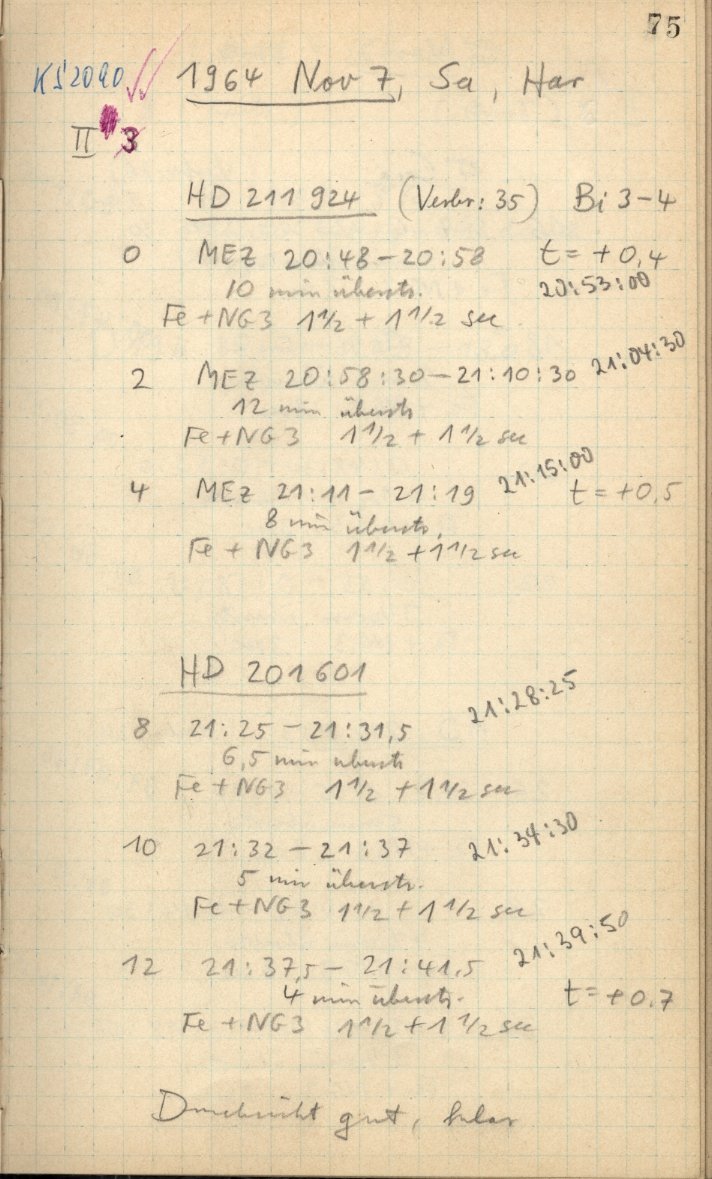 75
KS2090 1964 Nov 7, Sa, Har
II 3
HD 211 924 (Verbr: 35) Bi 3-4
0 MEZ 20:48-20:58 t = +0,4
10 min überstr. 20:53:00
Fe+NG3 1 1/2 + 1 1/2 sec
2 MEZ 20:58:30-21:10:30 21:04:30
12 min überstr
Fe+NG3 1 1/2 + 1 1/2 sec
4 MEZ 21:11-21:19 21:15:00 t = +0,5
8 min überstr.
Fe + NG3 1 1/2 + 1 1/2 sec
HD 201601
8 21:25-21:31,5 21:28:25
6,5 min überstr
Fe+NG3 1 1/2 + 1 1/2 sec
10 21:32-21:37 21:34:30
5 min überstr.
Fe+NG3 1 1/2 + 1 1/2 sec
12 21:37,5-21:41,5 21:39:50
4 min überstr. t = +0.7
Fe+NG3 1 1/2 + 1 1/2 sec
Durchsicht gut, klar